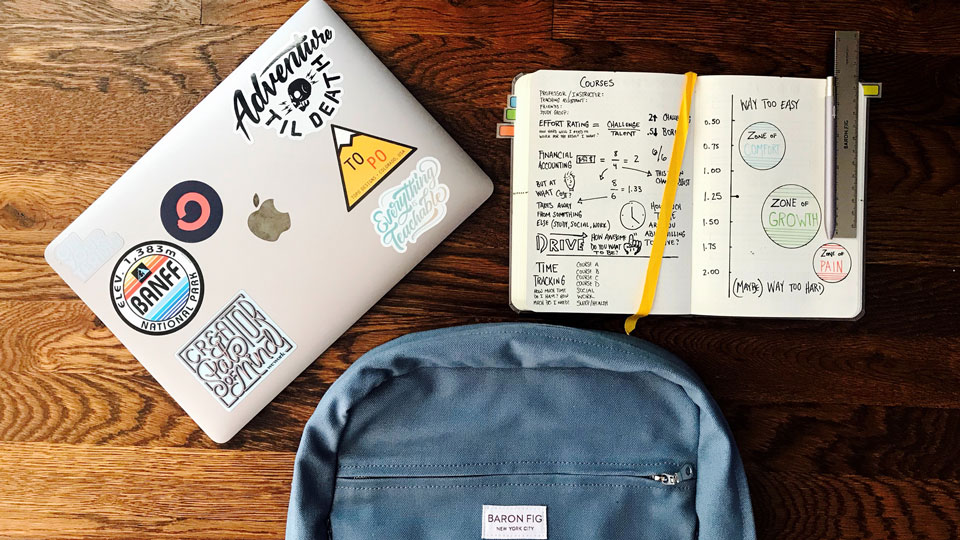 Adventure
'TIL DEATH
TO
PO
Everything
is
Teachable
ELEV. 1,383m
BANFF
NATIONAL PARK
CREATOR
State
OF
Mind
COURSES
PROFESSOR / INSTRUCTOR:
TEACHING ASSISTANT:
FRIENDS:
STUDY GROUP:
EFFORT RATING = CHALLENGE
TALENT
FINANCIAL
ACCOUNTING
= 8
4
= 2
BUT AT
WHAT COST?
8
6
= 1.33
TAKES AWAY
FROM SOMETHING
ELSE (STUDY, SOCIAL, WORK)
DRIVE
HOW AWESOME
DO YOU WANT
TO BE?
TIME
TRACKING
HOW MUCH TIME
DO I HAVE? HOW
MUCH DO I NEED?
COURSE A
COURSE B
COURSE C
COURSE D
SOCIAL
WORK
WAY TOO EASY
0.50
0.75
1.00
1.25
1.50
1.75
2.00
ZONE OF
COMFORT
ZONE OF
GROWTH
ZONE OF
PAIN
(MAYBE) WAY TOO HARD
BARON FIG
BARON FIG
NEW YORK CITY